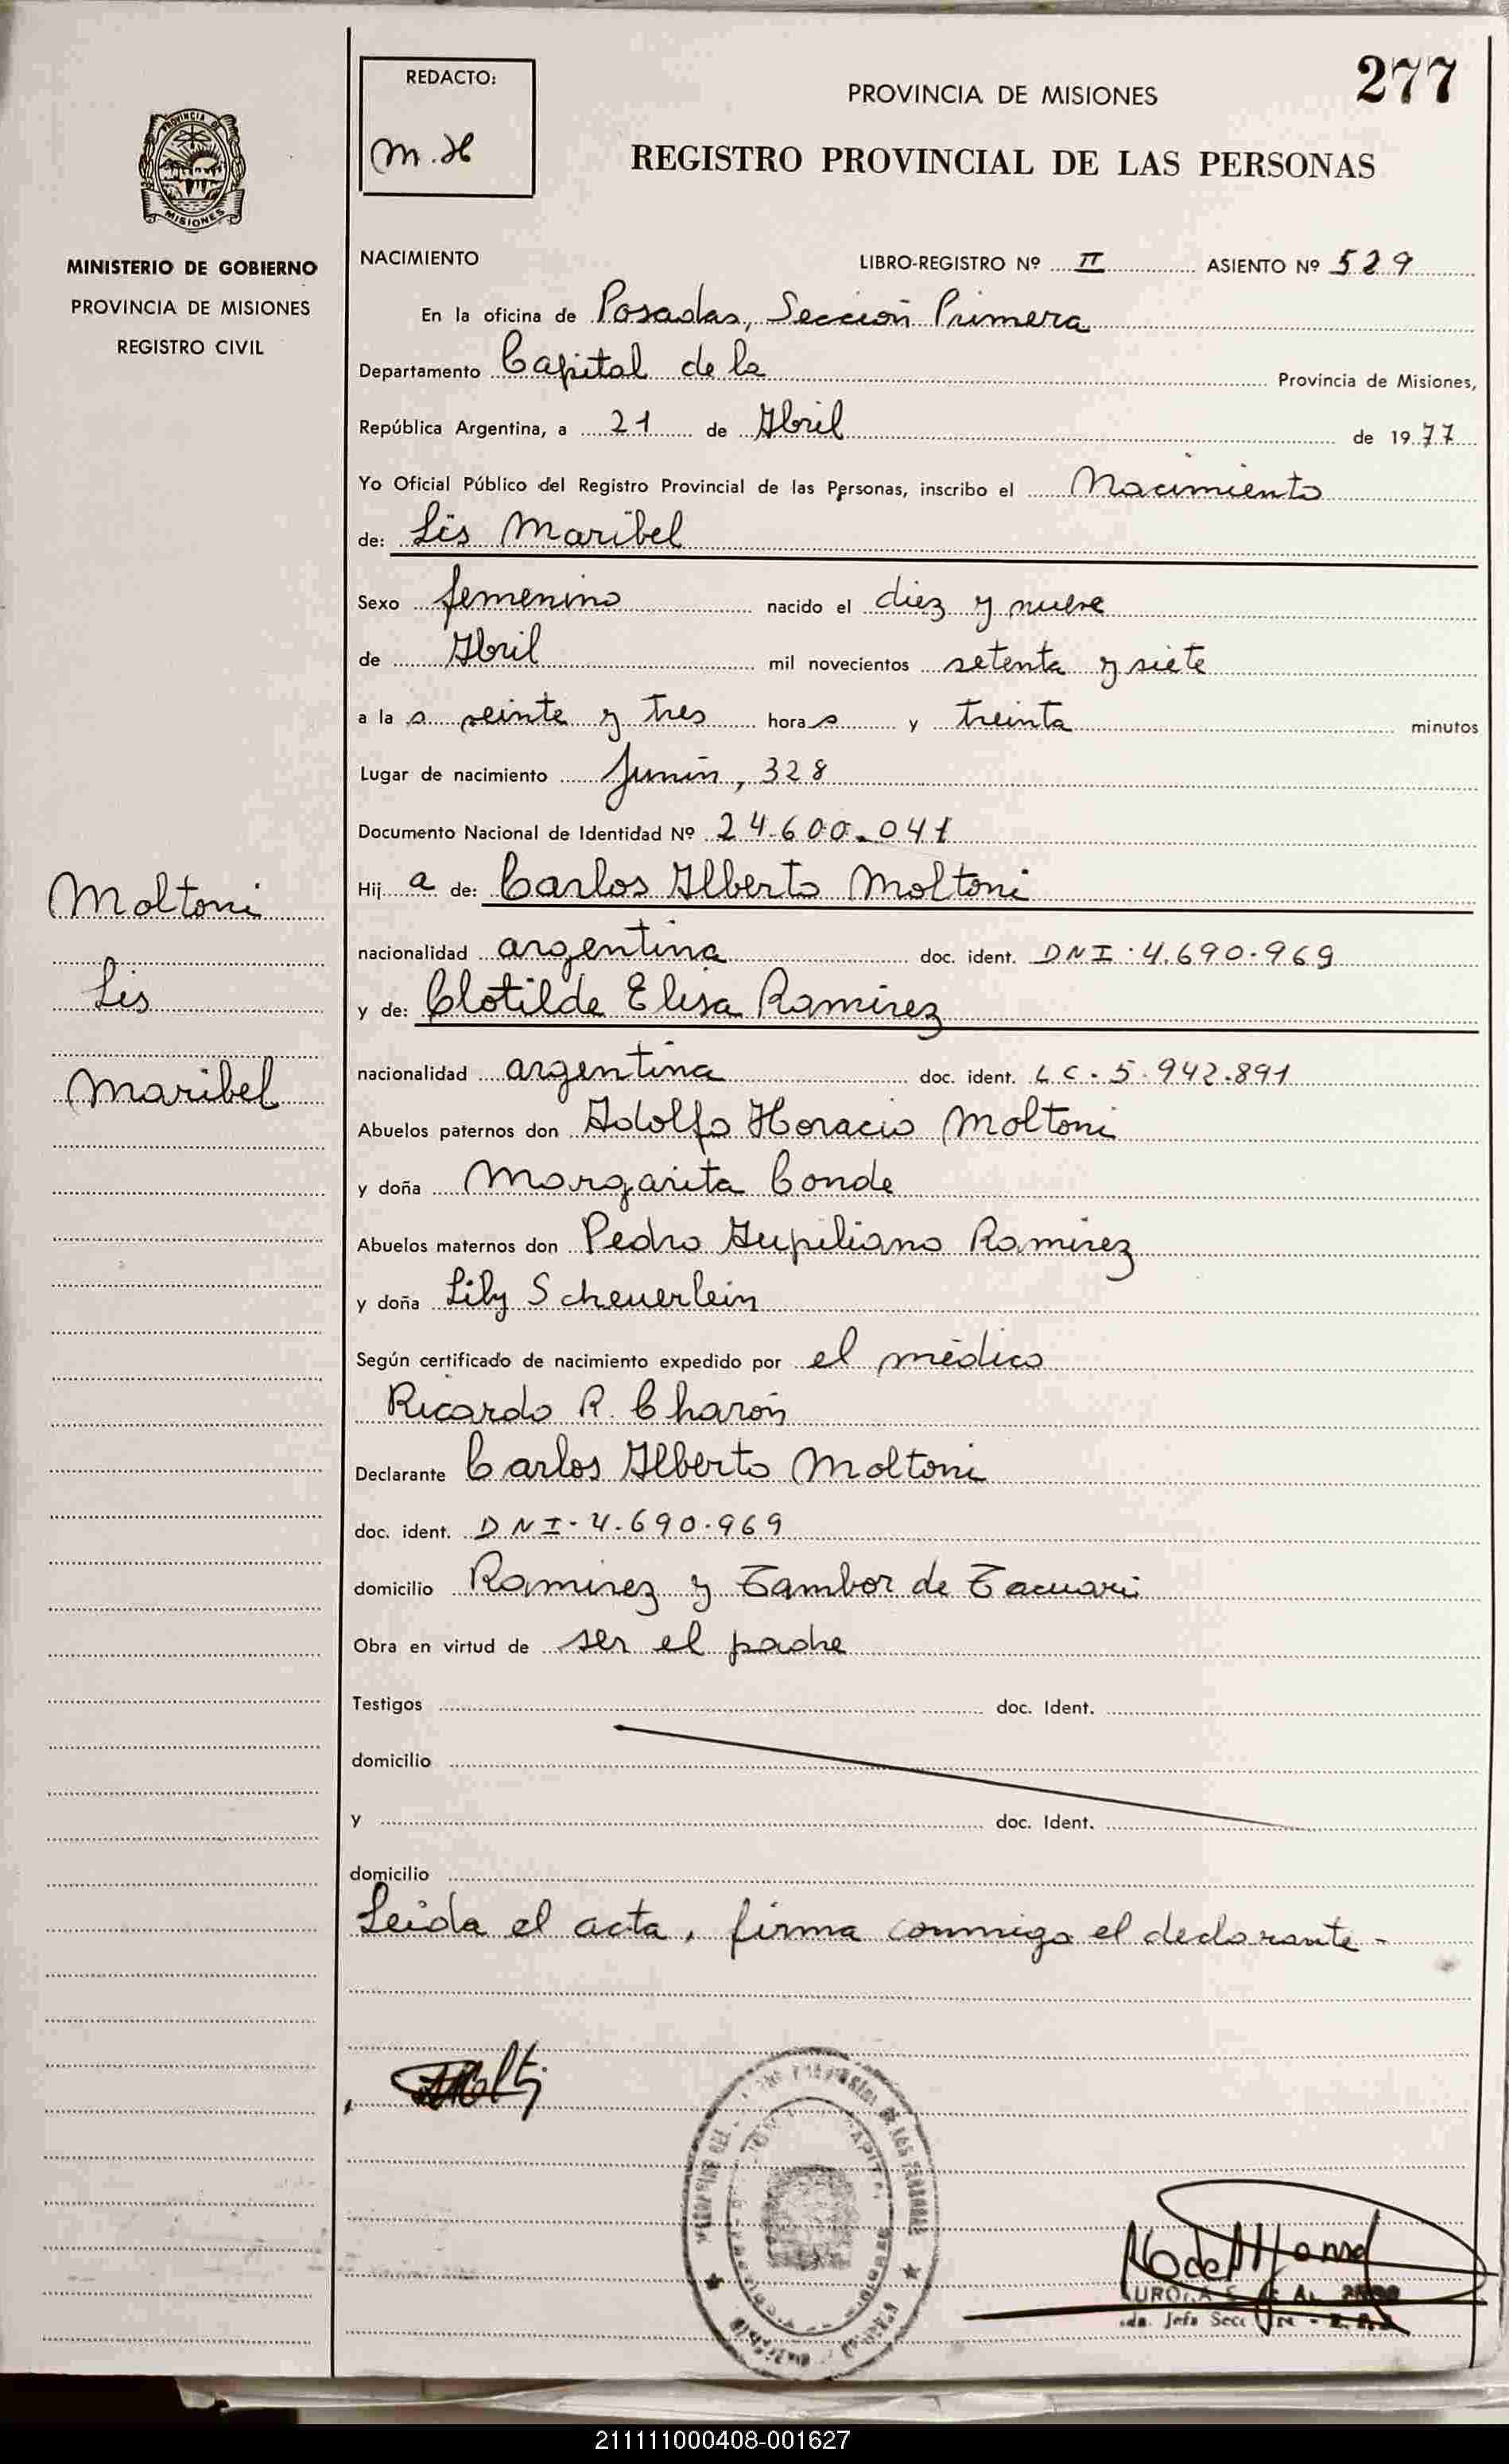 277
REDACTO:
M.H
PROVINCIA DE MISIONES
REGISTRO PROVINCIAL DE LAS PERSONAS
PROVINCIA DE
MISIONES
MINISTERIO DE GOBIERNO
PROVINCIA DE MISIONES
REGISTRO CIVIL
NACIMIENTO LIBRO-REGISTRO Nº II ASIENTO Nº 529
En la oficina de Posadas, Sección Primera
Departamento Capital de la Provincia de Misiones,
República Argentina, a 21 de Abril de 1977
Yo Oficial Público del Registro Provincial de las Personas, inscribo el Nacimiento
de: Lis Maribel
Sexo femenino nacido el diez y nueve
de Abril mil novecientos setenta y siete
a la s veinte y tres hora s y treinta minutos
Lugar de nacimiento Junín, 328
Documento Nacional de Identidad Nº 24.600.041
Hij a de: Carlos Alberto Moltoni
nacionalidad argentina doc. ident. DNI.4.690.969
y de: Clotilde Elisa Ramirez
nacionalidad argentina doc. ident. L C. 5.942.891
Abuelos paternos don Adolfo Horacio Moltoni
y doña Margarita Conde
Abuelos maternos don Pedro Aupiliano Ramirez
y doña Lily Scheuerlein
Según certificado de nacimiento expedido por el médico
Ricardo R. Charón
Declarante Carlos Alberto Moltoni
doc. ident. DNI.4.690.969
domicilio Ramirez y Tambor de Tacuari
Obra en virtud de ser el padre
Testigos doc. Ident.
domicilio
y doc. Ident.
domicilio
Leida el acta, firma conmigo el declarante -
Moltoni
Lis
Maribel
211111000408-001627